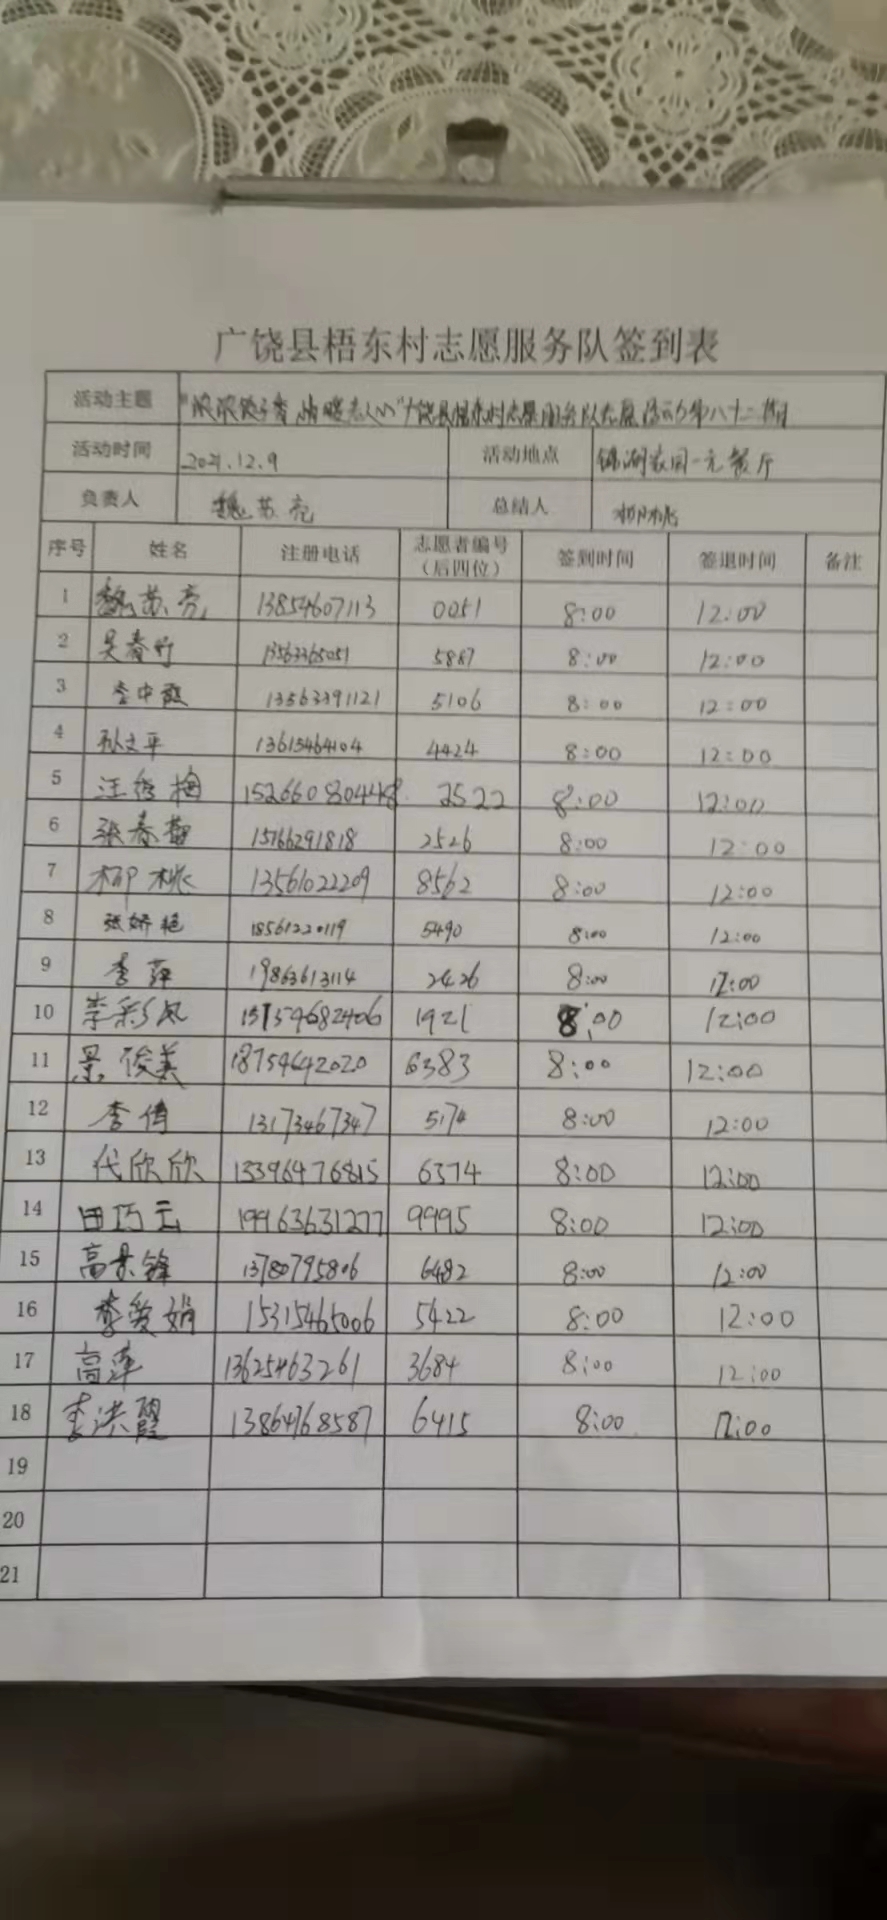 广饶县梧东村志愿服务队签到表
活动主题 "浓浓饺子香,情暖老人心"广饶县梧东村志愿服务队志愿活动第八十二期
活动时间 2021.12.9 活动地点 锦湖家园一元餐厅
负责人 魏苏亮 总结人 柳桃
序号 姓名 注册电话 志愿者编号(后四位) 签到时间 签退时间 备注
1 魏苏亮 13854607113 0051 8:00 12:00
2 吴春竹 13563365051 5887 8:00 12:00
3 李中霞 13563391121 5106 8:00 12:00
4 孙文平 13615464104 4424 8:00 12:00
5 汪秀梅 2522 8:00 12:00
6 张春梅 15166291818 2526 8:00 12:00
7 柳桃 13561022209 8562 8:00 12:00
8 张娇艳 18561220119 5490 8:00 12:00
9 李萍 19863613114 2426 8:00 12:00
10 李彩凤 1921 8:00 12:00
11 景俊美 18754642020 6383 8:00 12:00
12 李倩 13173467347 5174 8:00 12:00
13 代欣欣 13396476815 6374 8:00 12:00
14 田巧云 19963631277 9995 8:00 12:00
15 高景锋 13780795806 6482 8:00 12:00
16 李爱娟 15315465006 5422 8:00 12:00
17 高萍 13625463261 3684 8:00 12:00
18 李洪霞 13864768587 6415 8:00 12:00
19
20
21